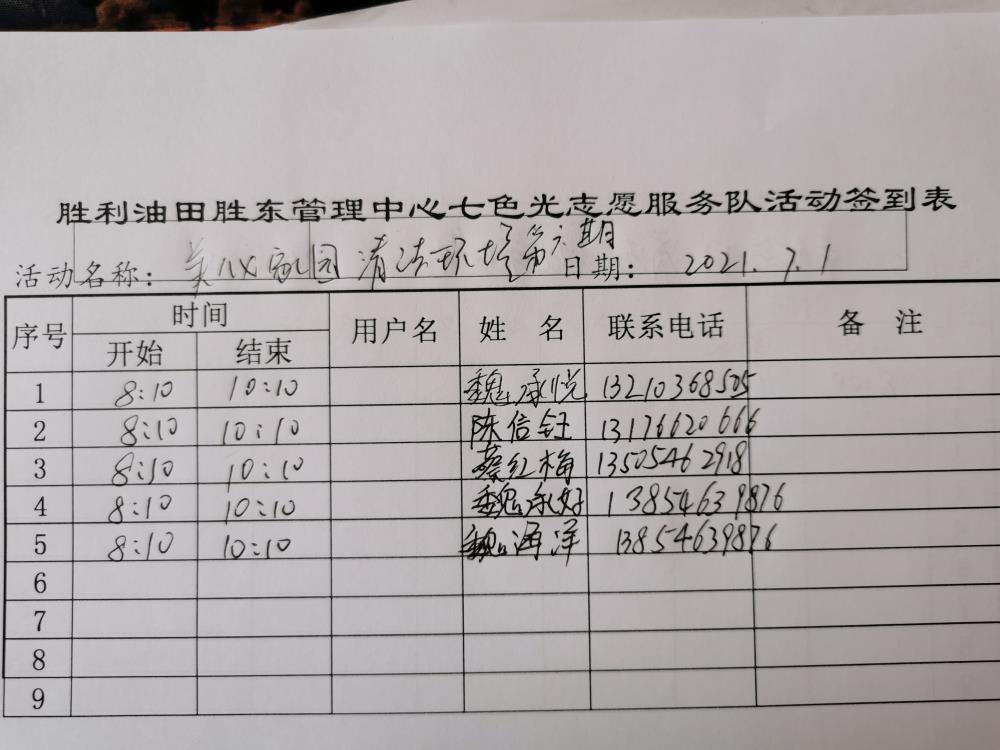 胜利油田胜东管理中心七色光志愿服务队活动签到表
活动名称: 美化家园清洁环境第六期 日期: 2021.7.1
序号 时间 用户名 姓 名 联系电话 备 注
开始 结束
1 8:10 10:10 魏承悦 13210368505
2 8:10 10:10 陈信钰 13176620666
3 8:10 10:10 蔡红梅 13505462918
4 8:10 10:10 魏承好 13854639876
5 8:10 10:10 魏海洋 13854639876
6
7
8
9